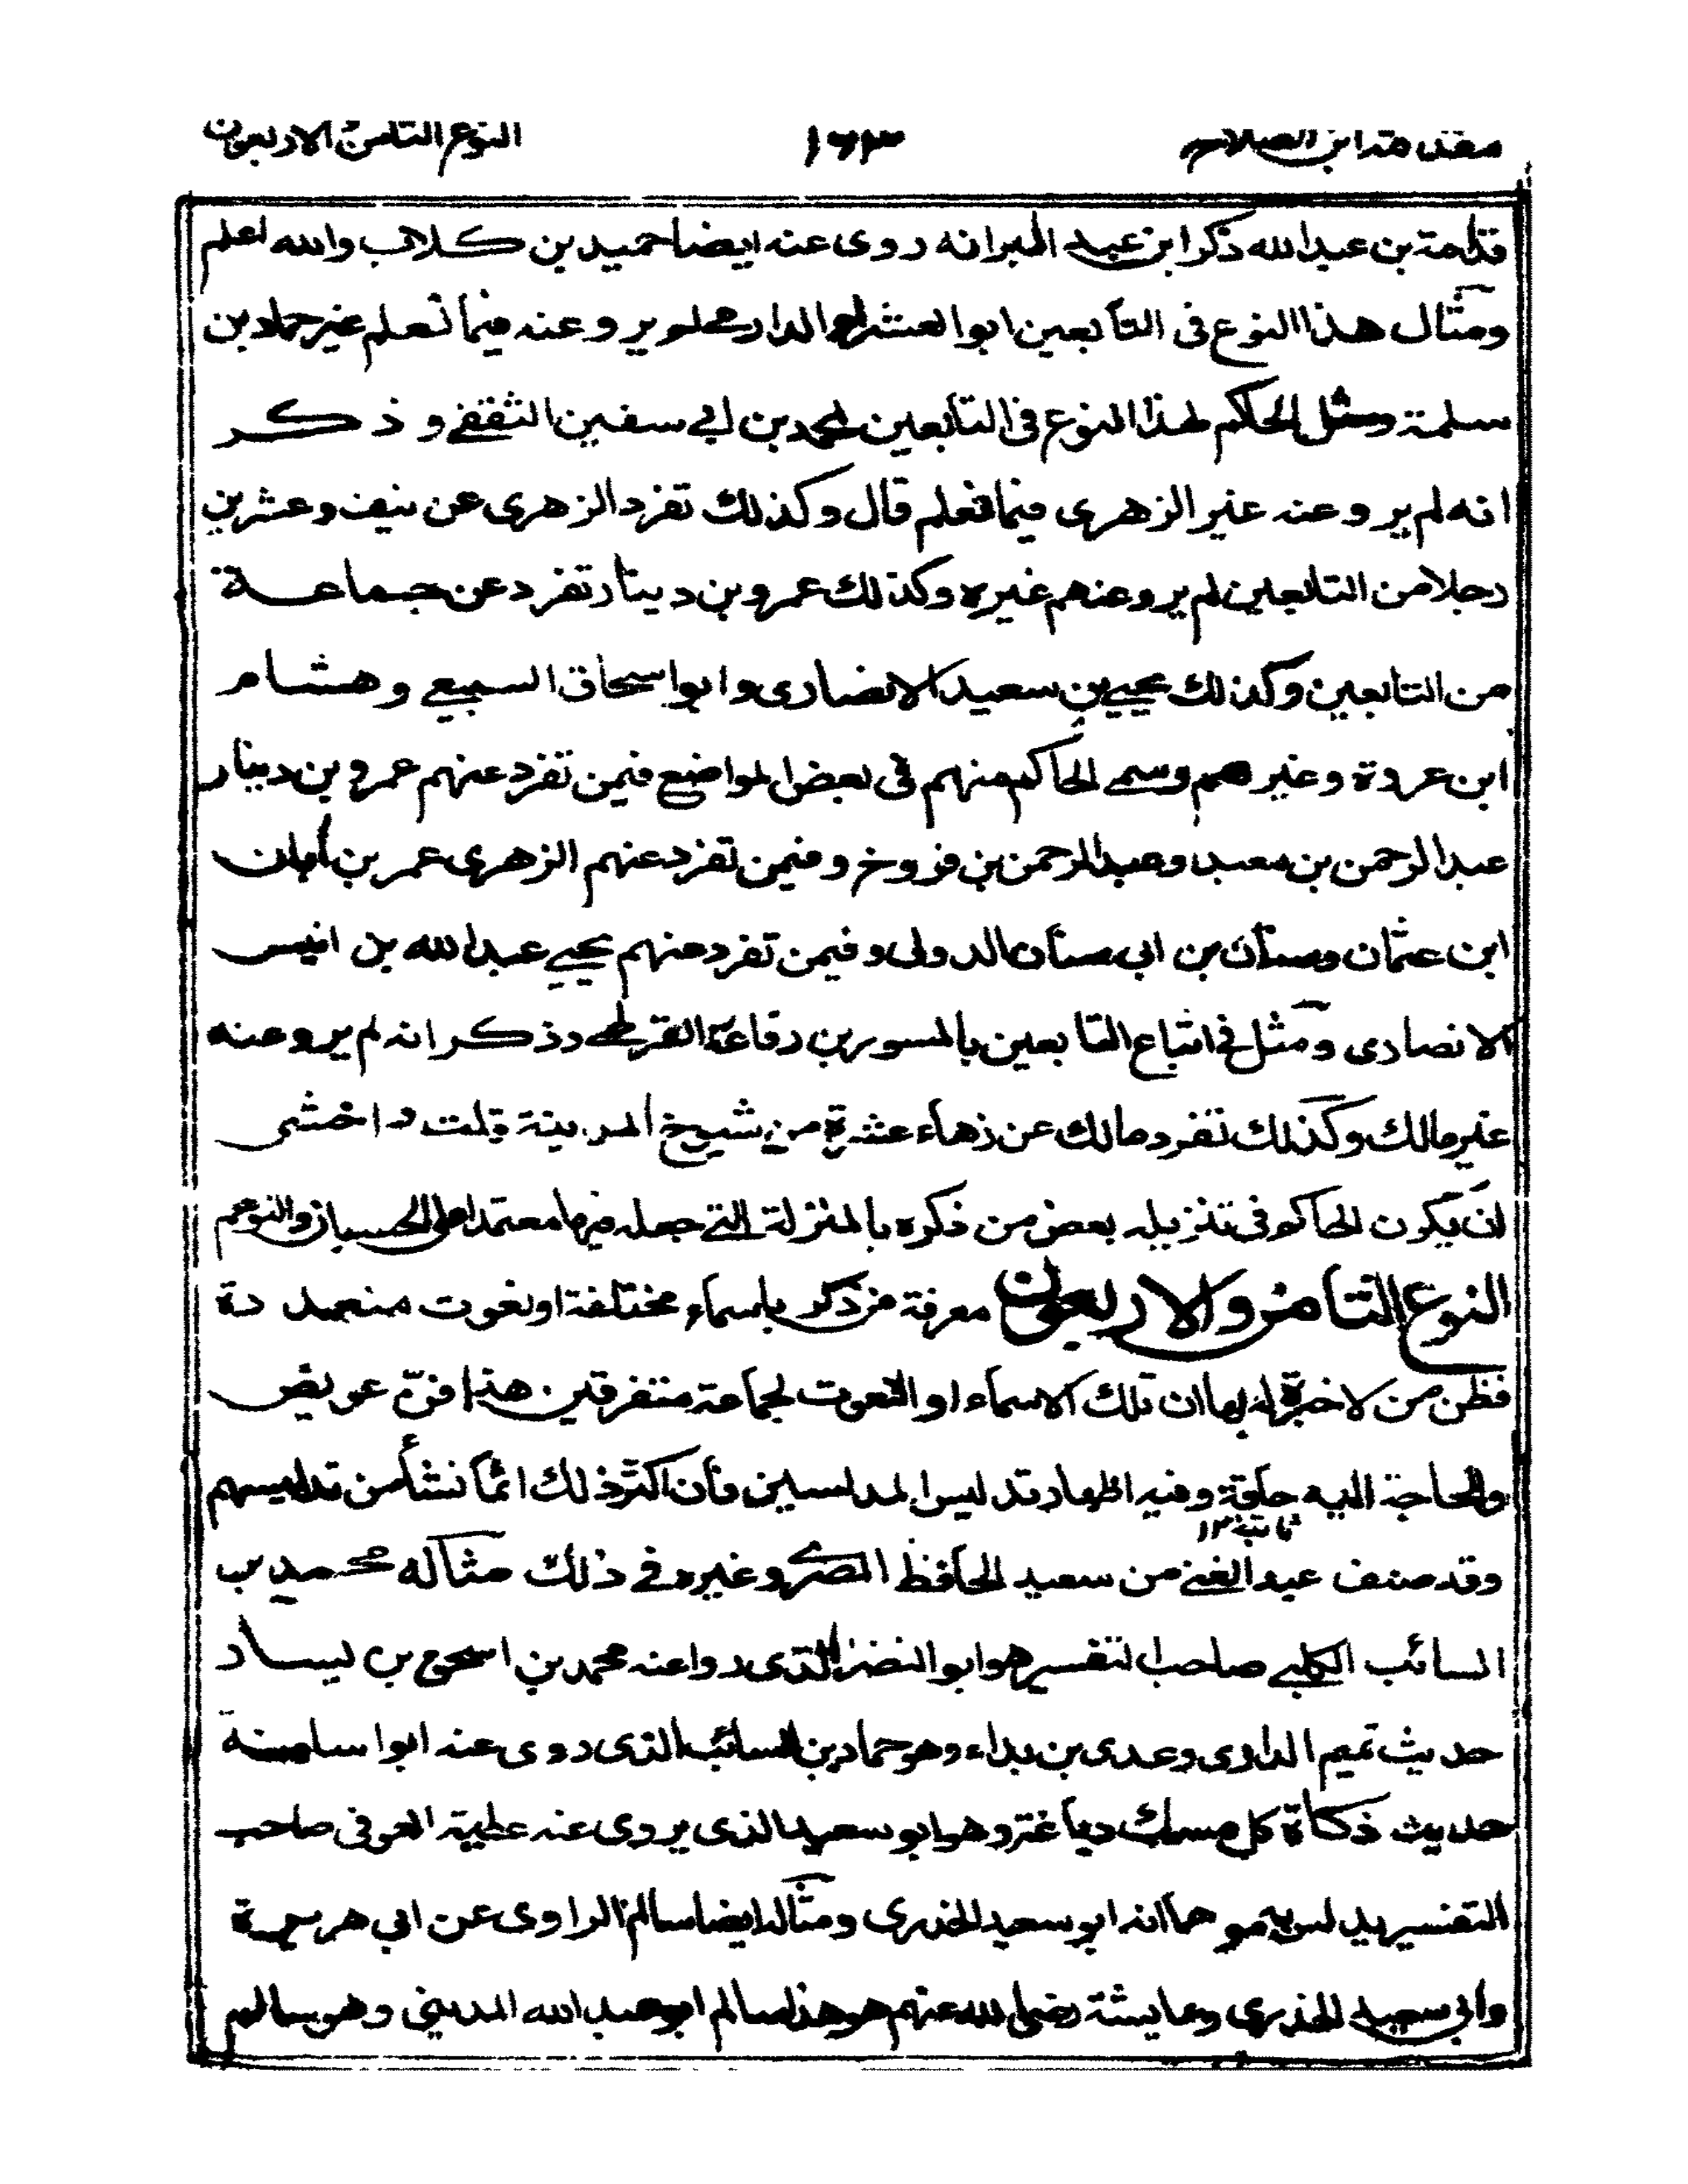 مقدمة ابن الصلاح ١٦٣ النوع الثامن الاربعون
قدامة بن عبدالله ذكر ابن عبد البر انه روى عنه ايضا حميد بن كلاب والله اعلم
ومثال هذا النوع فى التابعين ابو العشراء الدارمى لم يرو عنه فيما نعلم غير حماد بن
سلمة ومثل الحاكم لهذا النوع فى التابعين بمحمد بن ابي سفين الثقفي و ذكر
انه لم يرو عنه غير الزهرى فيما نعلم قال وكذلك تفرد الزهرى عن نيف وعشرين
رجلا من التابعين لم يرو عنهم غيره وكذلك عمرو بن دينار تفرد عن جماعة
من التابعين وكذلك يحيى بن سعيد الانصارى و ابو اسحاق السبيعي وهشام
ابن عروة وغيرهم وسمى الحاكم منهم فى بعض المواضع فيمن تفرد عنهم عمرو بن دينار
عبد الرحمن بن معبد وعبد الرحمن بن فروخ وفيمن تفرد عنهم الزهرى عمر بن أبان
ابن عثمان وسنان بن ابى سنان الدولى وفيمن تفرد عنهم يحيى عبدالله بن انيس
الانصارى ومثل فى اتباع التابعين بالمسور بن رفاعة القرظى وذكر انه لم يرو عنه
غير مالك وكذلك تفرد مالك عن زهاء عشرة من شيوخ المدينة قلت واخشى
ان يكون الحاكم فى تنزيله بعض من ذكره بالمنزلة التى جعله فيها معتمدا على الحسبان والتوهم
النوع الثامن والاربعون معرفة من ذكر باسماء مختلفة او نعوت متعددة
فظن من لا خبرة له بها ان تلك الاسماء او النعوت لجماعة متفرقين هذا فن عويص
والحاجة اليه حاقة وفيه اظهار تدليس المدلسين فان اكثر ذلك انما نشأ من تدليسهم
ثابتة ١٢
وقد صنف عبد الغنى من سعيد الحافظ المصرى وغيره فى ذلك مثاله محمد بن
السائب الكلبى صاحب التفسير هو ابو النضر الذى روا عنه محمد بن اسحق بن يسار
حديث تميم الدارى وعدى بن بداء وهو حماد بن السائب الذى روى عنه ابو اسامة
حديث ذكاة كل مسك دباغه وهو ابو سعيد الذى يروى عنه عطية العوفى صاحب
التفسير يدلس به موهما انه ابو سعيد الخدرى ومثاله ايضا سالم الراوى عن ابى هريرة
وابى سعيد الخدرى وعايشة رضى الله عنهم هو هذا سالم ابو عبد الله المدينى وهو سالم